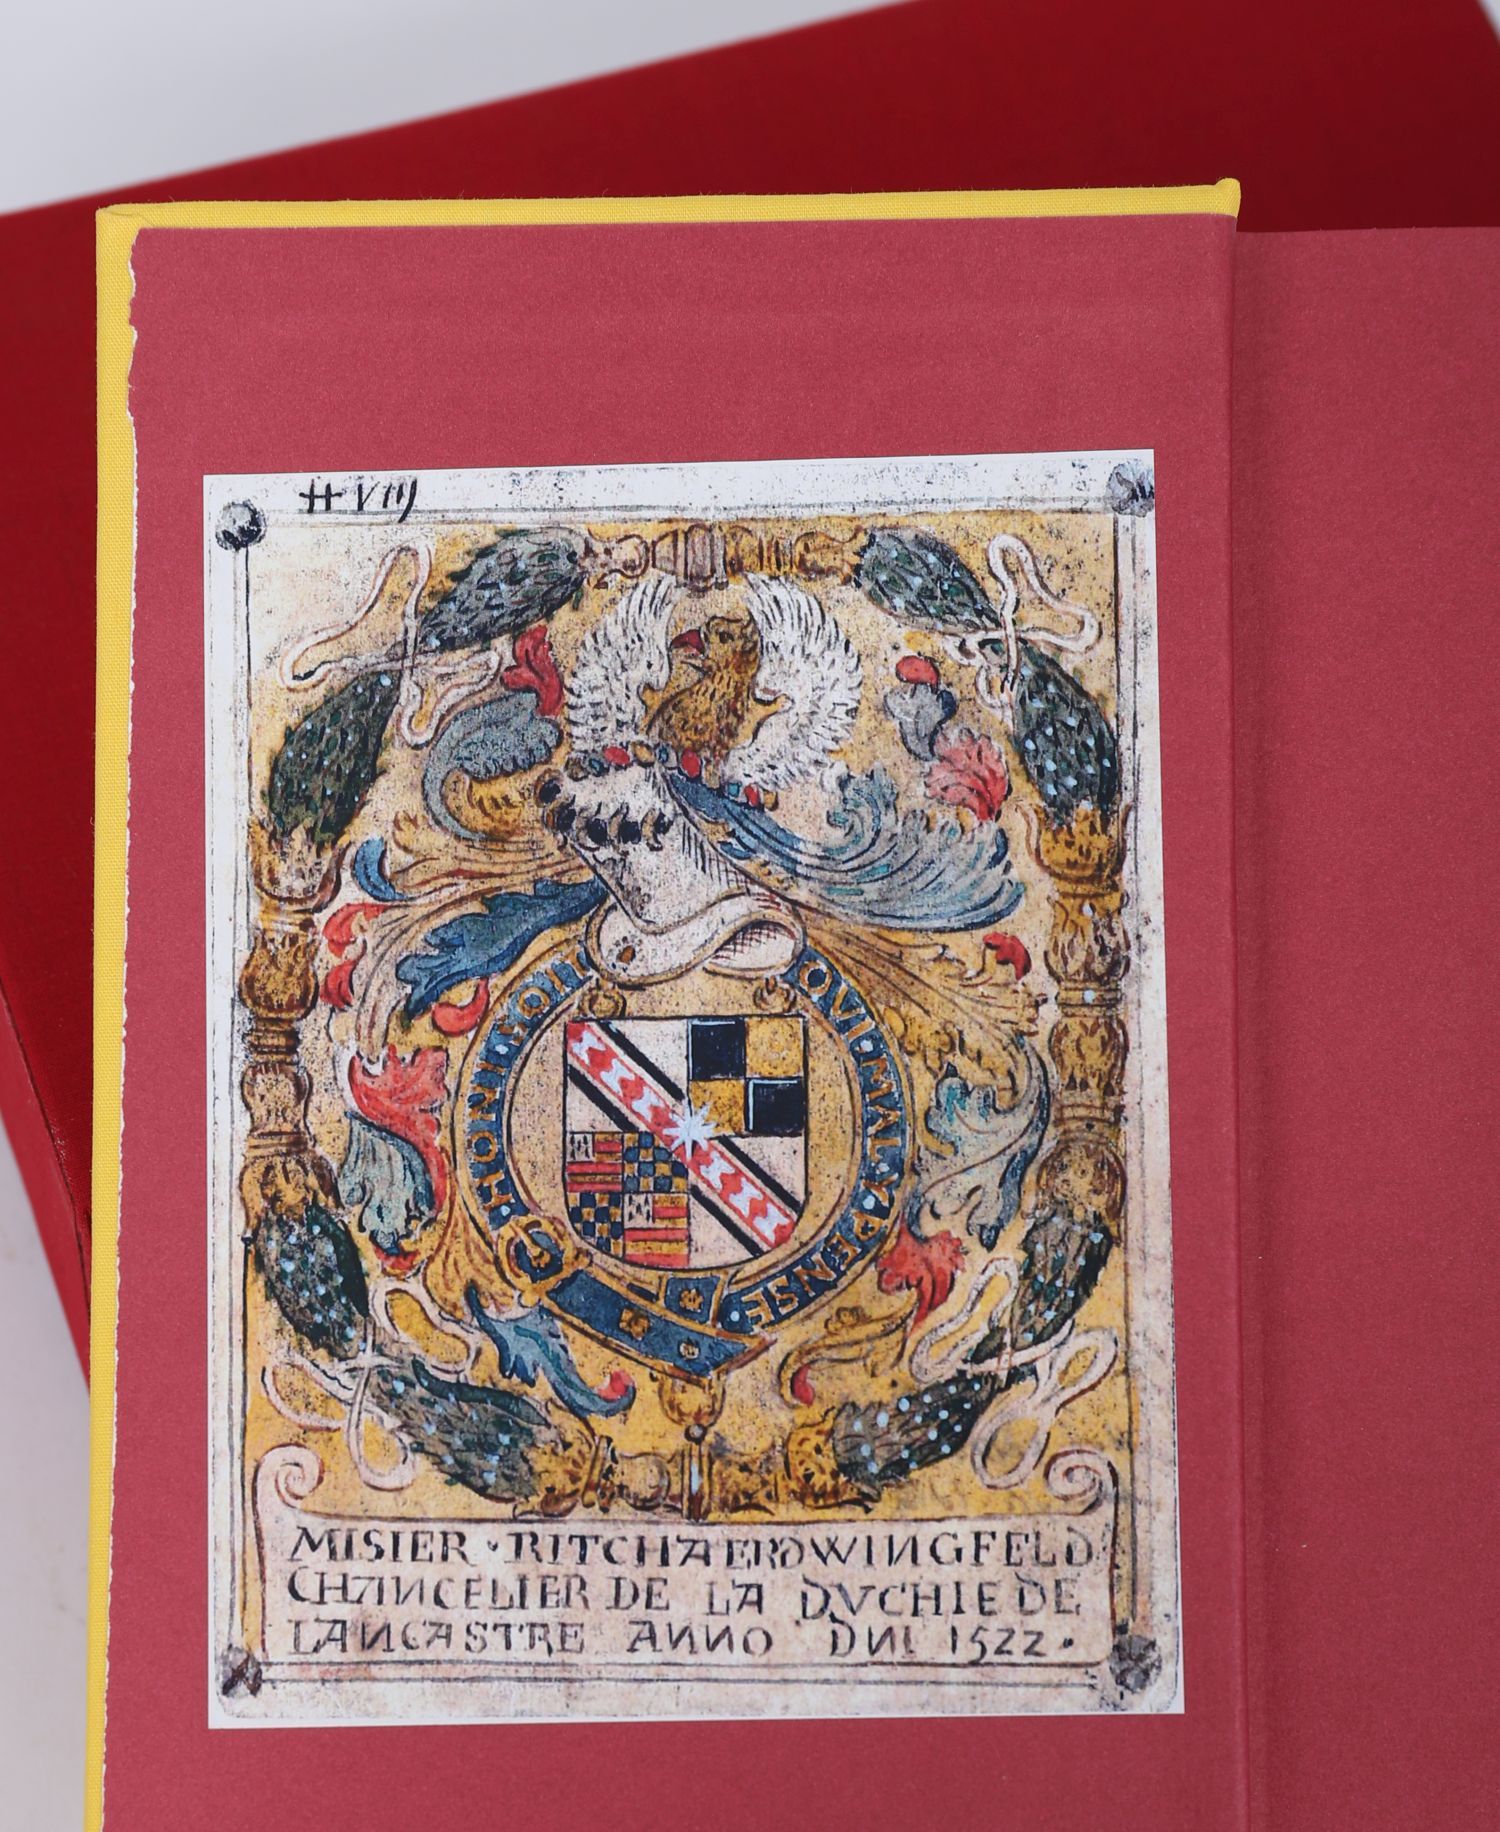 H VIIJ
HONI · SOIT
QVI · MAL · Y · PENSE ·
MISIER · RITCHAERD WINGFELD
CHANCELIER DE LA DVCHIE DE
LANCASTRE ANNO DNI 1522 ·